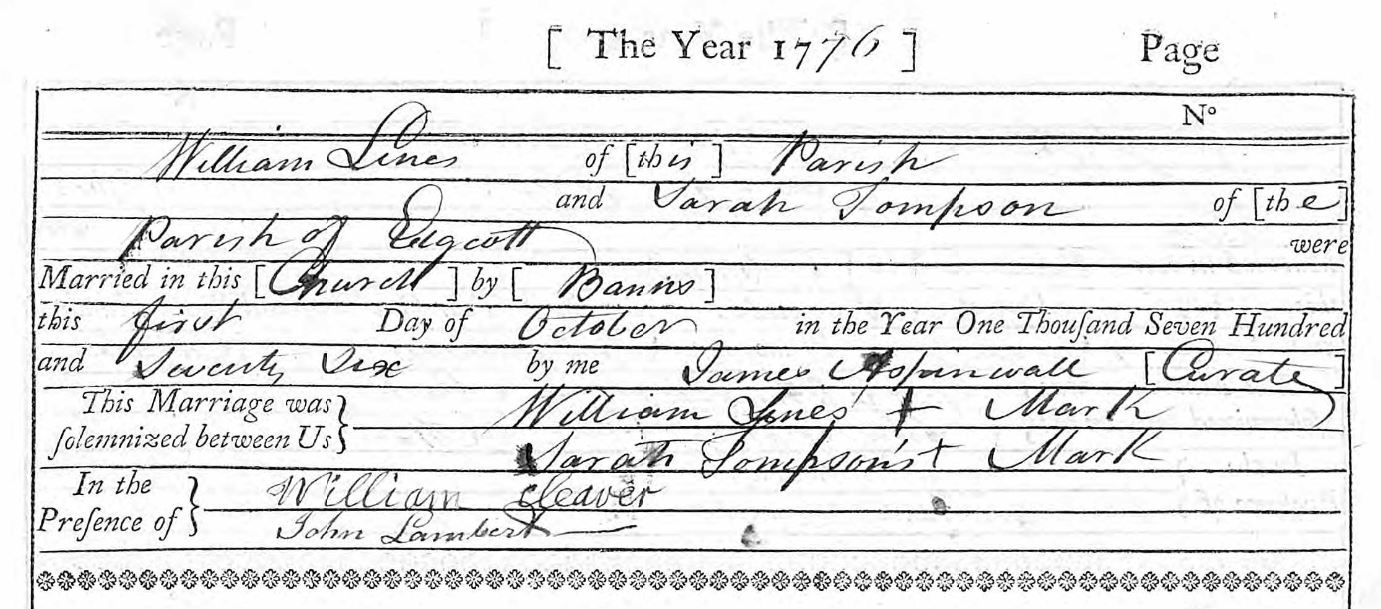 [ The Year 1776 ] Page
No
William Lines of [this] Parish
and Sarah Tompson of [the]
Parish of Edgcott were
Married in this [Church] by [Banns]
this first Day of October in the Year One Thouſand Seven Hundred
and Seventy Six by me James Aspinwall [Curate]
This Marriage was ſolemnized between Us } William Lines' + Mark
Sarah Tompson's + Mark
In the Preſence of } William Cleaver
John Lambert